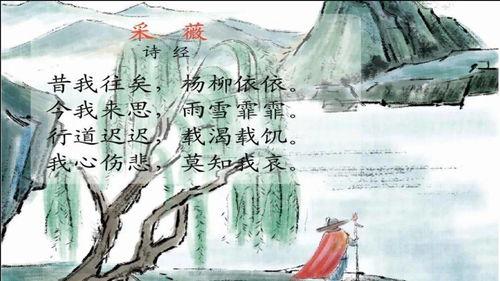 采 薇
诗 经
昔我往矣，杨柳依依。
今我来思，雨雪霏霏。
行道迟迟，载渴载饥。
我心伤悲，莫知我哀。